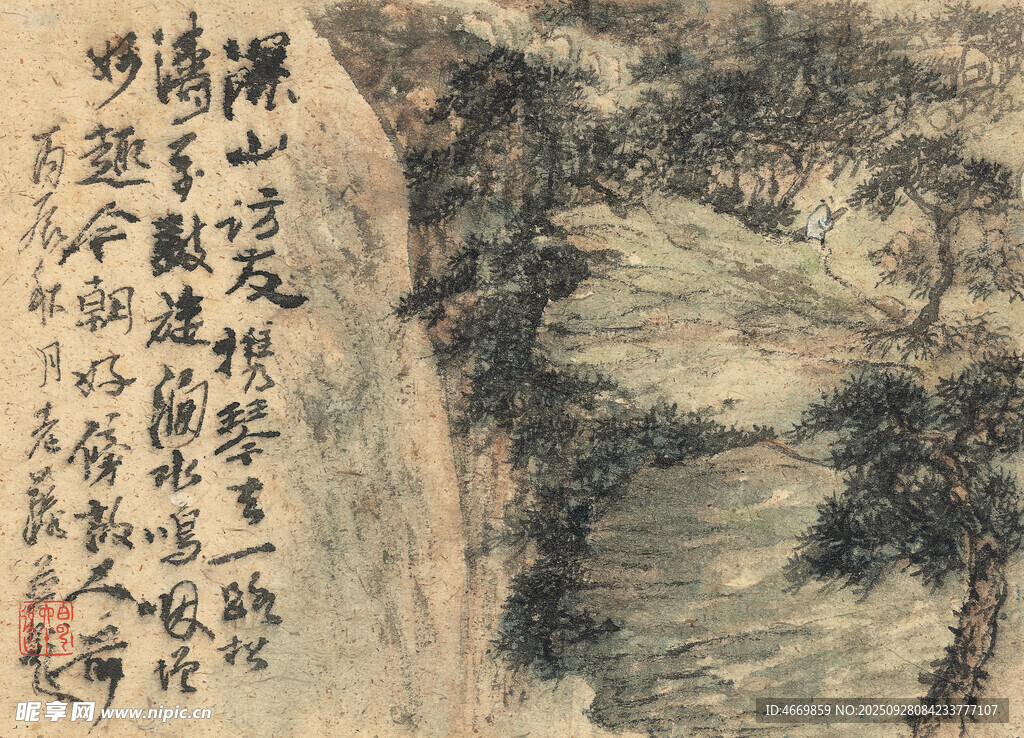 深山访友携琴去一路松
涛系鼓旋涧水鸣咽增
妙趣今朝好傍故人
丙辰秋月老萍
昵享网 www.nipic.cn
ID:4669859 NO:20250928084233777107